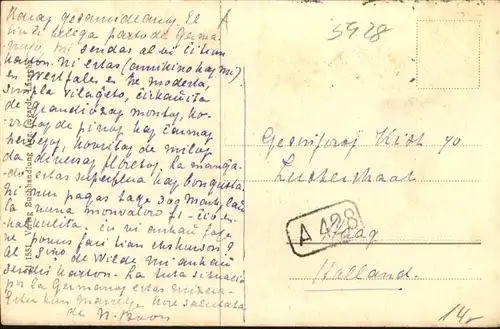 Karaj gesamideanoj. El
tiu ĉi belega parto de Germa-
nujo, mi sendas al vi ĉi tiun
karton. Ni estas (amikino kaj mi)
en Westfalen en tre modesta,
simpla vilaĝeto, ĉirkaŭita
de grandiozaj montoj, ko-
vritaj de pinoj kaj ĉarmaj
herbejoj, kovritaj de miloj
da diversaj floretoj. La manĝa-
do estas superflua kaj bongusta.
Ni nun pagas tage 300 Mark, laŭ
la nuna monvaloro fl - ĉio en-
kalkulita. Ĉu vi ankaŭ foje
ne povus fari tian ekskurson?
Al Sino de Wilde mi ankaŭ
sendis karton. La tuta situacio
por la Germanoj estas mizera.
kore salutata
de N. Boon
A
5928
Gesinjoroj Kist
Lusterstraat
Haag
Holland.
A 428
14r